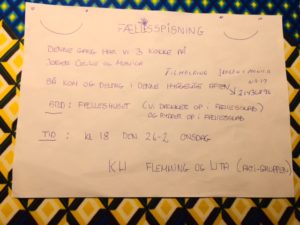 FÆLLESSPISNING
DENNE GANG HAR VI 3 KOKKE PÅ
JØRGEN CECILIE OG MONICA
TILMELDING JØRGEN & MONICA
SÅ KOM OG DELTAG I DENNE HYGGELIGE AFTEN
STED: FÆLLESHUSET (VI DÆKKER OP I FÆLLESSKAB)
OG RYDDER OP I FÆLLESSKAB
TID : KL 18 DEN 26-2 ONSDAG
KH FLEMMING OG UTA (AKTI-GRUPPEN)